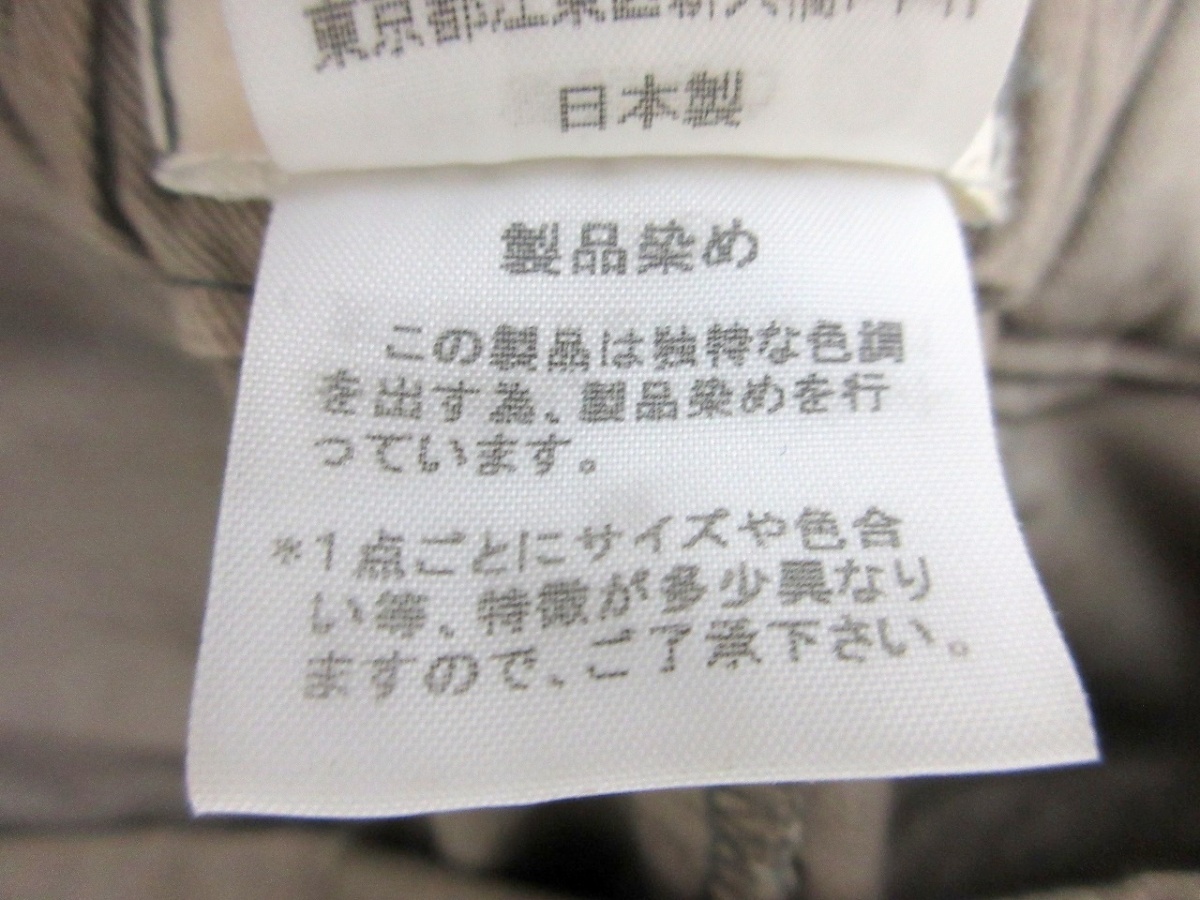 東京都江東区新大橋
日本製
製品染め
この製品は独特な色調
を出す為、製品染めを行
っています。
*1点ごとにサイズや色合
い等、特徴が多少異なり
ますので、ご了承下さい。